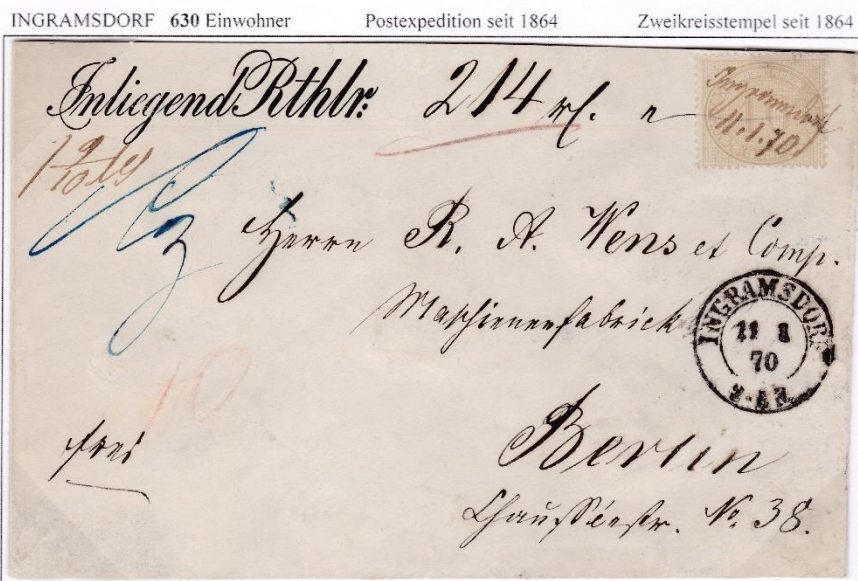 INGRAMSDORF 630 Einwohner Postexpedition seit 1864 Zweikreisstempel seit 1864
Inliegend Rthlr: 214 rl.
Ingramsdorf
11.1.70
Herrn R. A. Wens et Comp.
Maschienenfabrick
INGRAMSDORF
11 1
70
frei
Berlin
Chausséestr. No. 38.